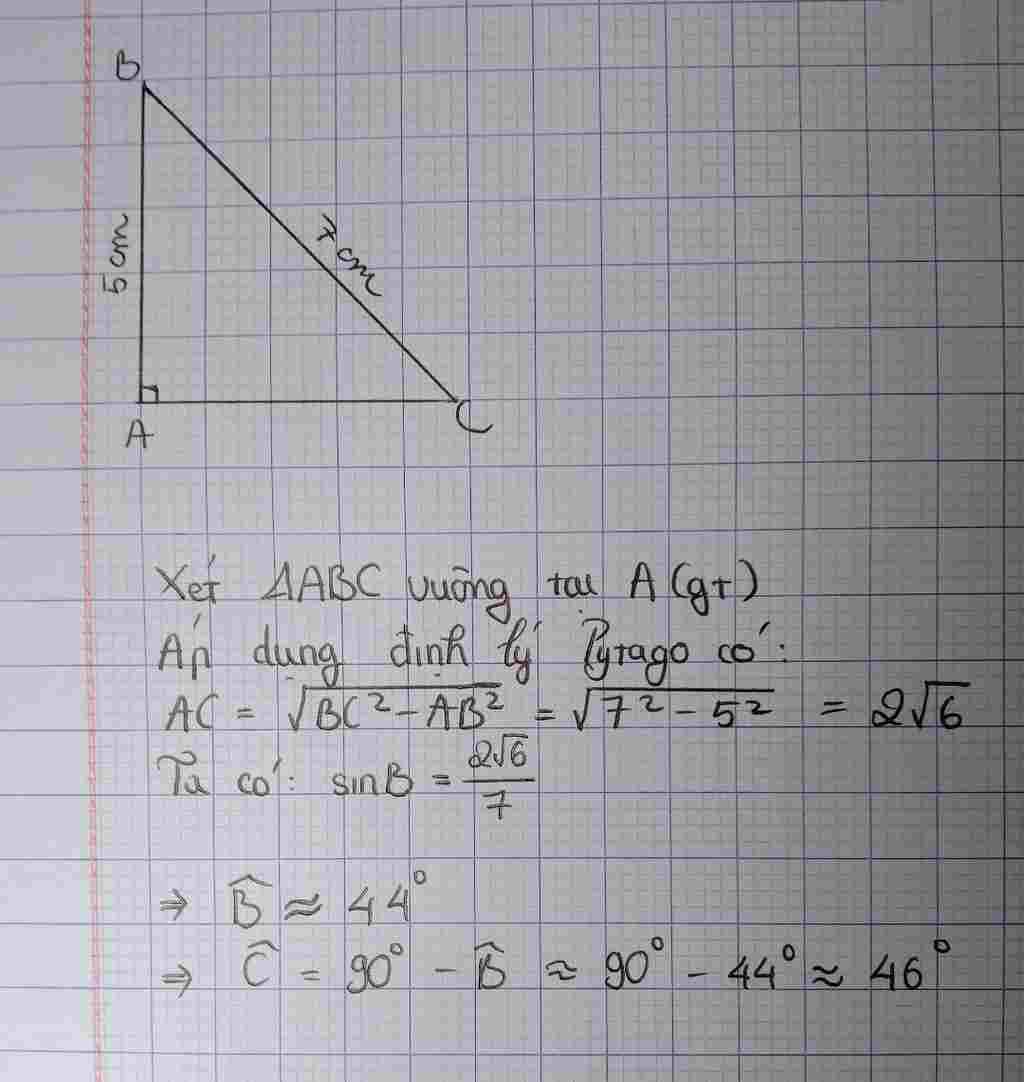 B
5cm
7cm
A
C
Xét ΔABC vuông tại A (gt)
Áp dụng định lý Pytago có:
AC = √(BC² - AB²) = √(7² - 5²) = 2√6
Ta có: sinB = 2√6/7
⇒ B̂ ≈ 44°
⇒ Ĉ = 90° - B̂ ≈ 90° - 44° ≈ 46°